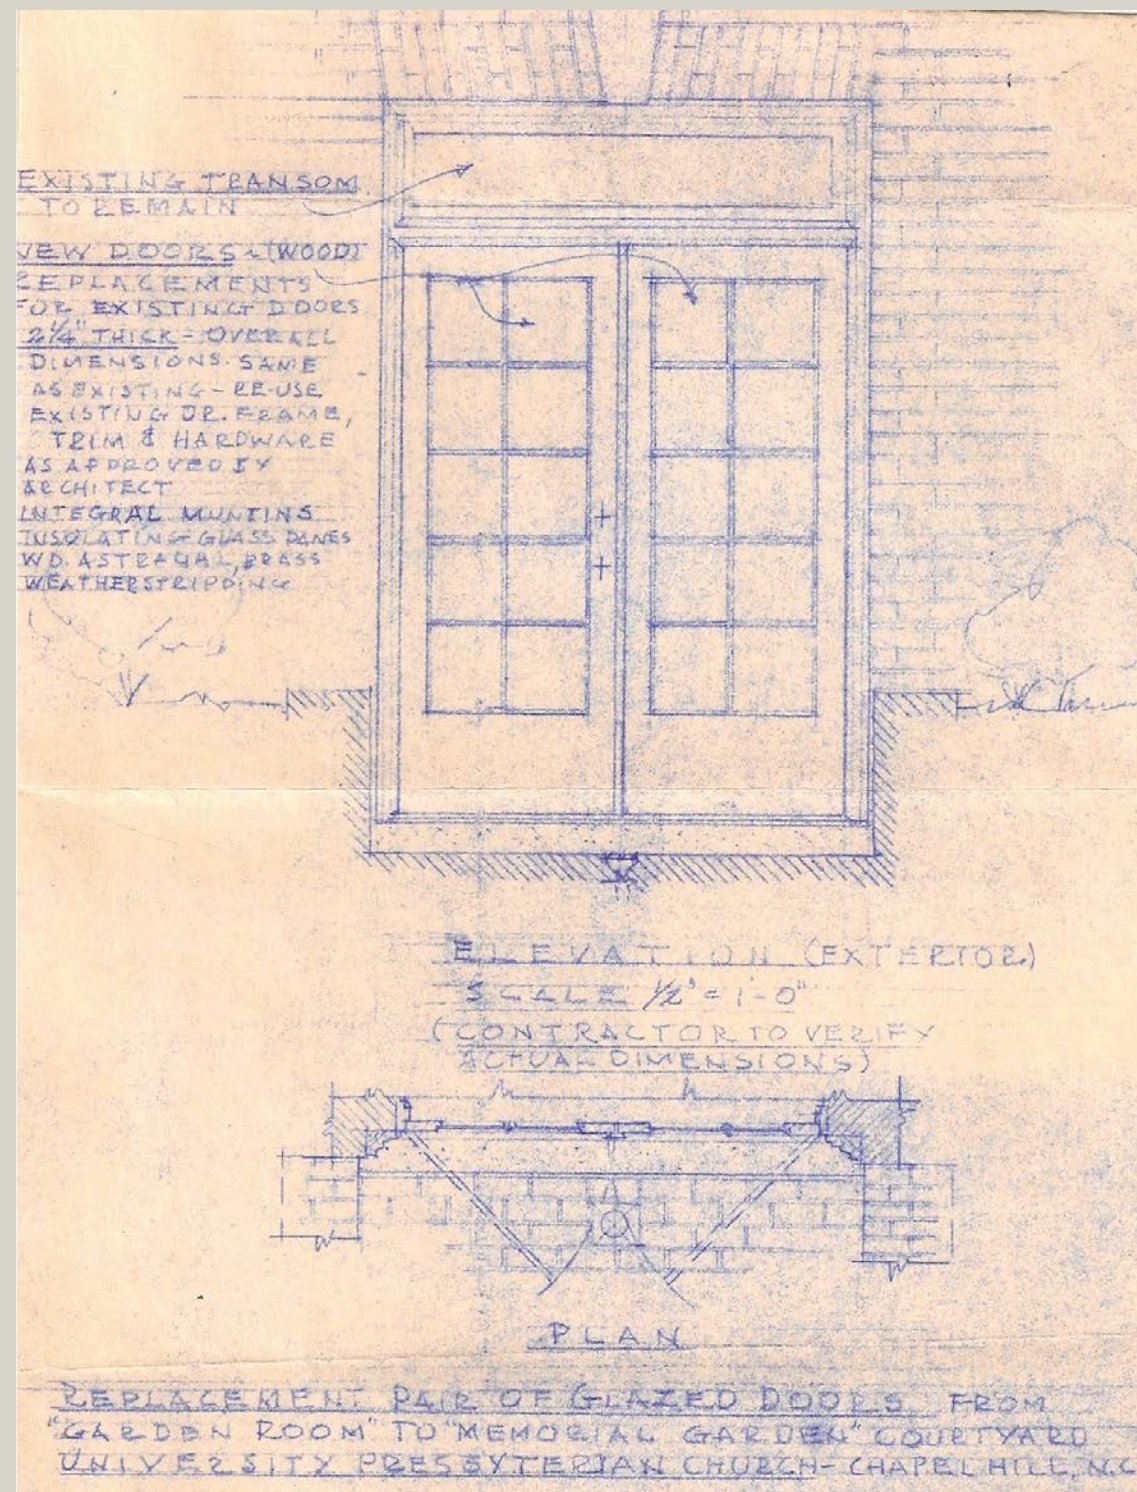 EXISTING TRANSOM
TO REMAIN
NEW DOORS - (WOOD)
REPLACEMENTS
FOR EXISTING DOORS
2 1/4" THICK - OVERALL
DIMENSIONS SAME
AS EXISTING - RE-USE
EXISTING DR. FRAME,
TRIM & HARDWARE
AS APPROVED BY
ARCHITECT
INTEGRAL MUNTINS
INSULATING GLASS PANES
WD. ASTRAGAL, BRASS
WEATHERSTRIPPING
ELEVATION (EXTERIOR)
SCALE 1/2" = 1'-0"
(CONTRACTOR TO VERIFY
ACTUAL DIMENSIONS)
PLAN
REPLACEMENT PAIR OF GLAZED DOORS FROM
"GARDEN ROOM" TO "MEMORIAL GARDEN" COURTYARD
UNIVERSITY PRESBYTERIAN CHURCH - CHAPEL HILL, N.C.